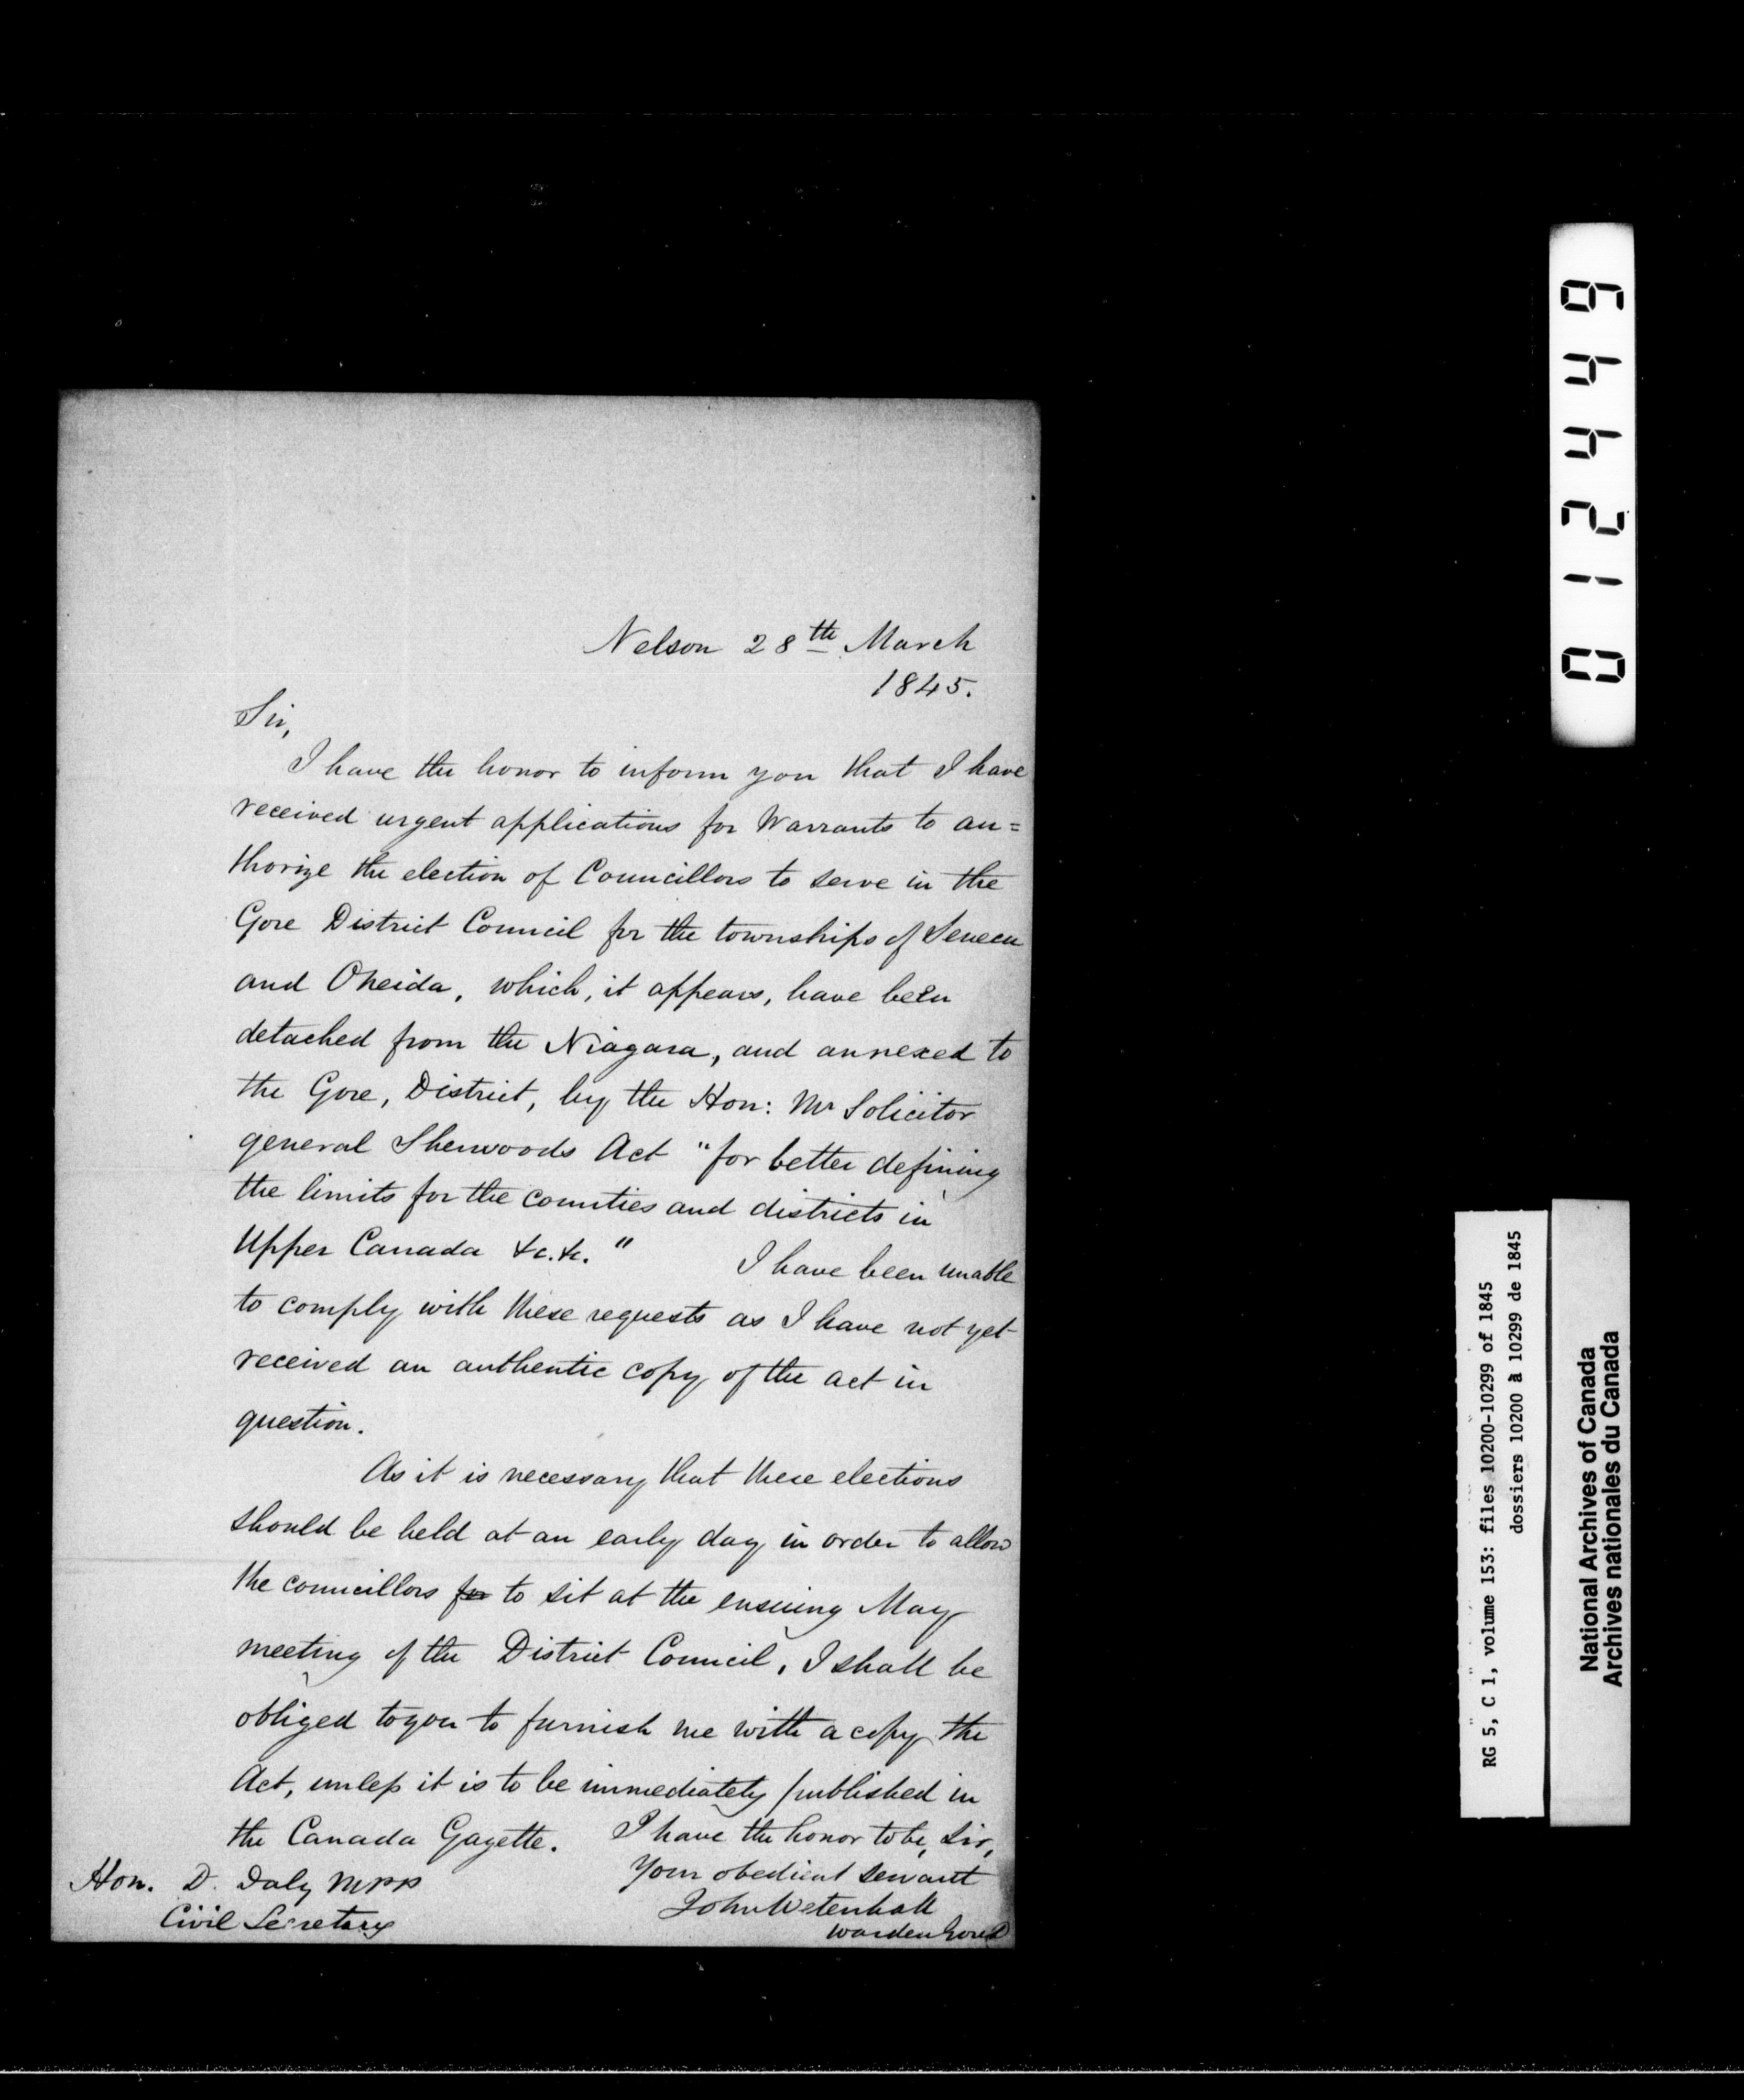 Nelson 28th March
1845.
Sir,
I have the honor to inform you that I have
received urgent applications for Warrants to au=
thorize the election of Councillors to serve in the
Gore District Council for the townships of Seneca
and Oneida, which, it appears, have been
detached from the Niagara, and annexed to
the Gore, District, by the Hon: Mr Solicitor
general Sherwoods Act "for better defining
the limits for the counties and districts in
Upper Canada &c. &c."
I have been unable
to comply with these requests as I have not yet
received an authentic copy of the act in
question.
As it is necessary that these elections
should be held at an early day in order to allow
the councillors for to sit at the ensuing May
meeting of the District Council, I shall be
obliged to you to furnish me with a copy the
Act, unless it is to be immediately published in
the Canada Gazette.
I have the honor to be, Sir,
Your obedient servant
John Wetenhall
Warden Gore D
Hon. D. Daly MPP
Civil Secretary
012449
RG 5, C 1, volume 153: files 10200-10299 of 1845
dossiers 10200 à 10299 de 1845
National Archives of Canada
Archives nationales du Canada